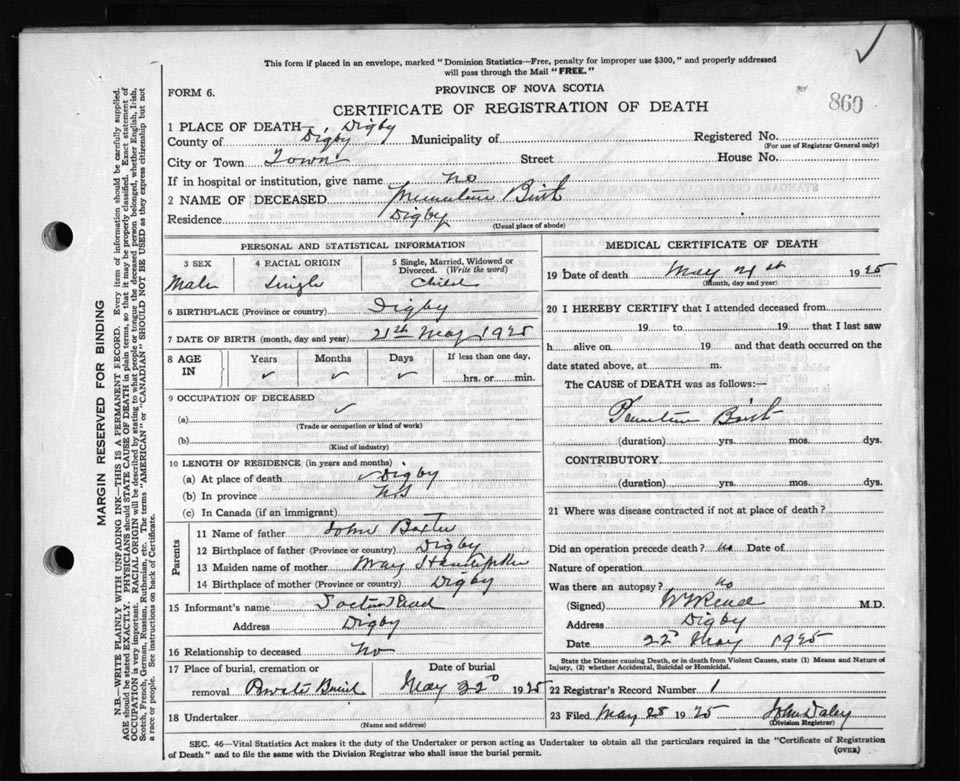 This form if placed in an envelope, marked “Dominion Statistics—Free, penalty for improper use $300,” and properly addressed
will pass through the Mail “FREE.”
FORM 6.
PROVINCE OF NOVA SCOTIA
860
CERTIFICATE OF REGISTRATION OF DEATH
1 PLACE OF DEATH— Digby
County of Digby Municipality of Registered No.
(For use of Registrar General only)
City or Town Town Street House No.
If in hospital or institution, give name no
2 NAME OF DECEASED Premature Birth
Residence Digby
(Usual place of abode)
PERSONAL AND STATISTICAL INFORMATION
3 SEX 4 RACIAL ORIGIN 5 Single, Married, Widowed or
Divorced. (Write the word)
Male Single Child
6 BIRTHPLACE (Province or country) Digby
7 DATE OF BIRTH (month, day and year) 21st May 1925
8 AGE IN Years Months Days If less than one day,
✓ ✓ ✓ hrs. or min.
9 OCCUPATION OF DECEASED
(a) ✓
(Trade or occupation or kind of work)
(b)
(Kind of industry)
10 LENGTH OF RESIDENCE (in years and months)
(a) At place of death Digby
(b) In province N.S
(c) In Canada (if an immigrant)
Parents
11 Name of father John Baxter
12 Birthplace of father (Province or country) Digby
13 Maiden name of mother May
14 Birthplace of mother (Province or country) Digby
15 Informant's name Read
Address Digby
16 Relationship to deceased No
17 Place of burial, cremation or Date of burial
removal Private Burial May 22 1925
18 Undertaker
(Name and address)
MEDICAL CERTIFICATE OF DEATH
19 Date of death May 21st 1925
(Month, day and year)
20 I HEREBY CERTIFY that I attended deceased from
19 to 19 that I last saw
h alive on 19 and that death occurred on the
date stated above, at m.
The CAUSE of DEATH was as follows:—
Premature Birth
(duration) yrs. mos. dys.
CONTRIBUTORY.
(duration) yrs. mos. dys.
21 Where was disease contracted if not at place of death?
Did an operation precede death? no Date of
Nature of operation
Was there an autopsy? no
(Signed) Read M.D.
Address Digby
Date 22 May 1925
State the Disease causing Death, or in death from Violent Causes, state (1) Means and Nature of
Injury, (2) whether Accidental, Suicidal or Homicidal.
22 Registrar's Record Number 1
23 Filed May 28 1925 John Daley
(Division Registrar)
SEC. 46—Vital Statistics Act makes it the duty of the Undertaker or person acting as Undertaker to obtain all the particulars required in the “Certificate of Registration
of Death” and to file the same with the Division Registrar who shall issue the burial permit.
(OVER)
MARGIN RESERVED FOR BINDING
N.B.—WRITE PLAINLY WITH UNFADING INK—THIS IS A PERMANENT RECORD. Every item of information should be carefully supplied.
AGE should be stated EXACTLY. PHYSICIANS should STATE CAUSE OF DEATH in plain terms, so that it may be properly classified. Exact statement of
OCCUPATION is very important. RACIAL ORIGIN will be described by stating to what people or tongue the deceased person belonged, whether English, Irish,
Scotch, French, German, Russian, Ruthenian, etc. The terms “AMERICAN” or “CANADIAN” SHOULD NOT BE USED as they express citizenship but not
a race or people. See instructions on back of Certificate.